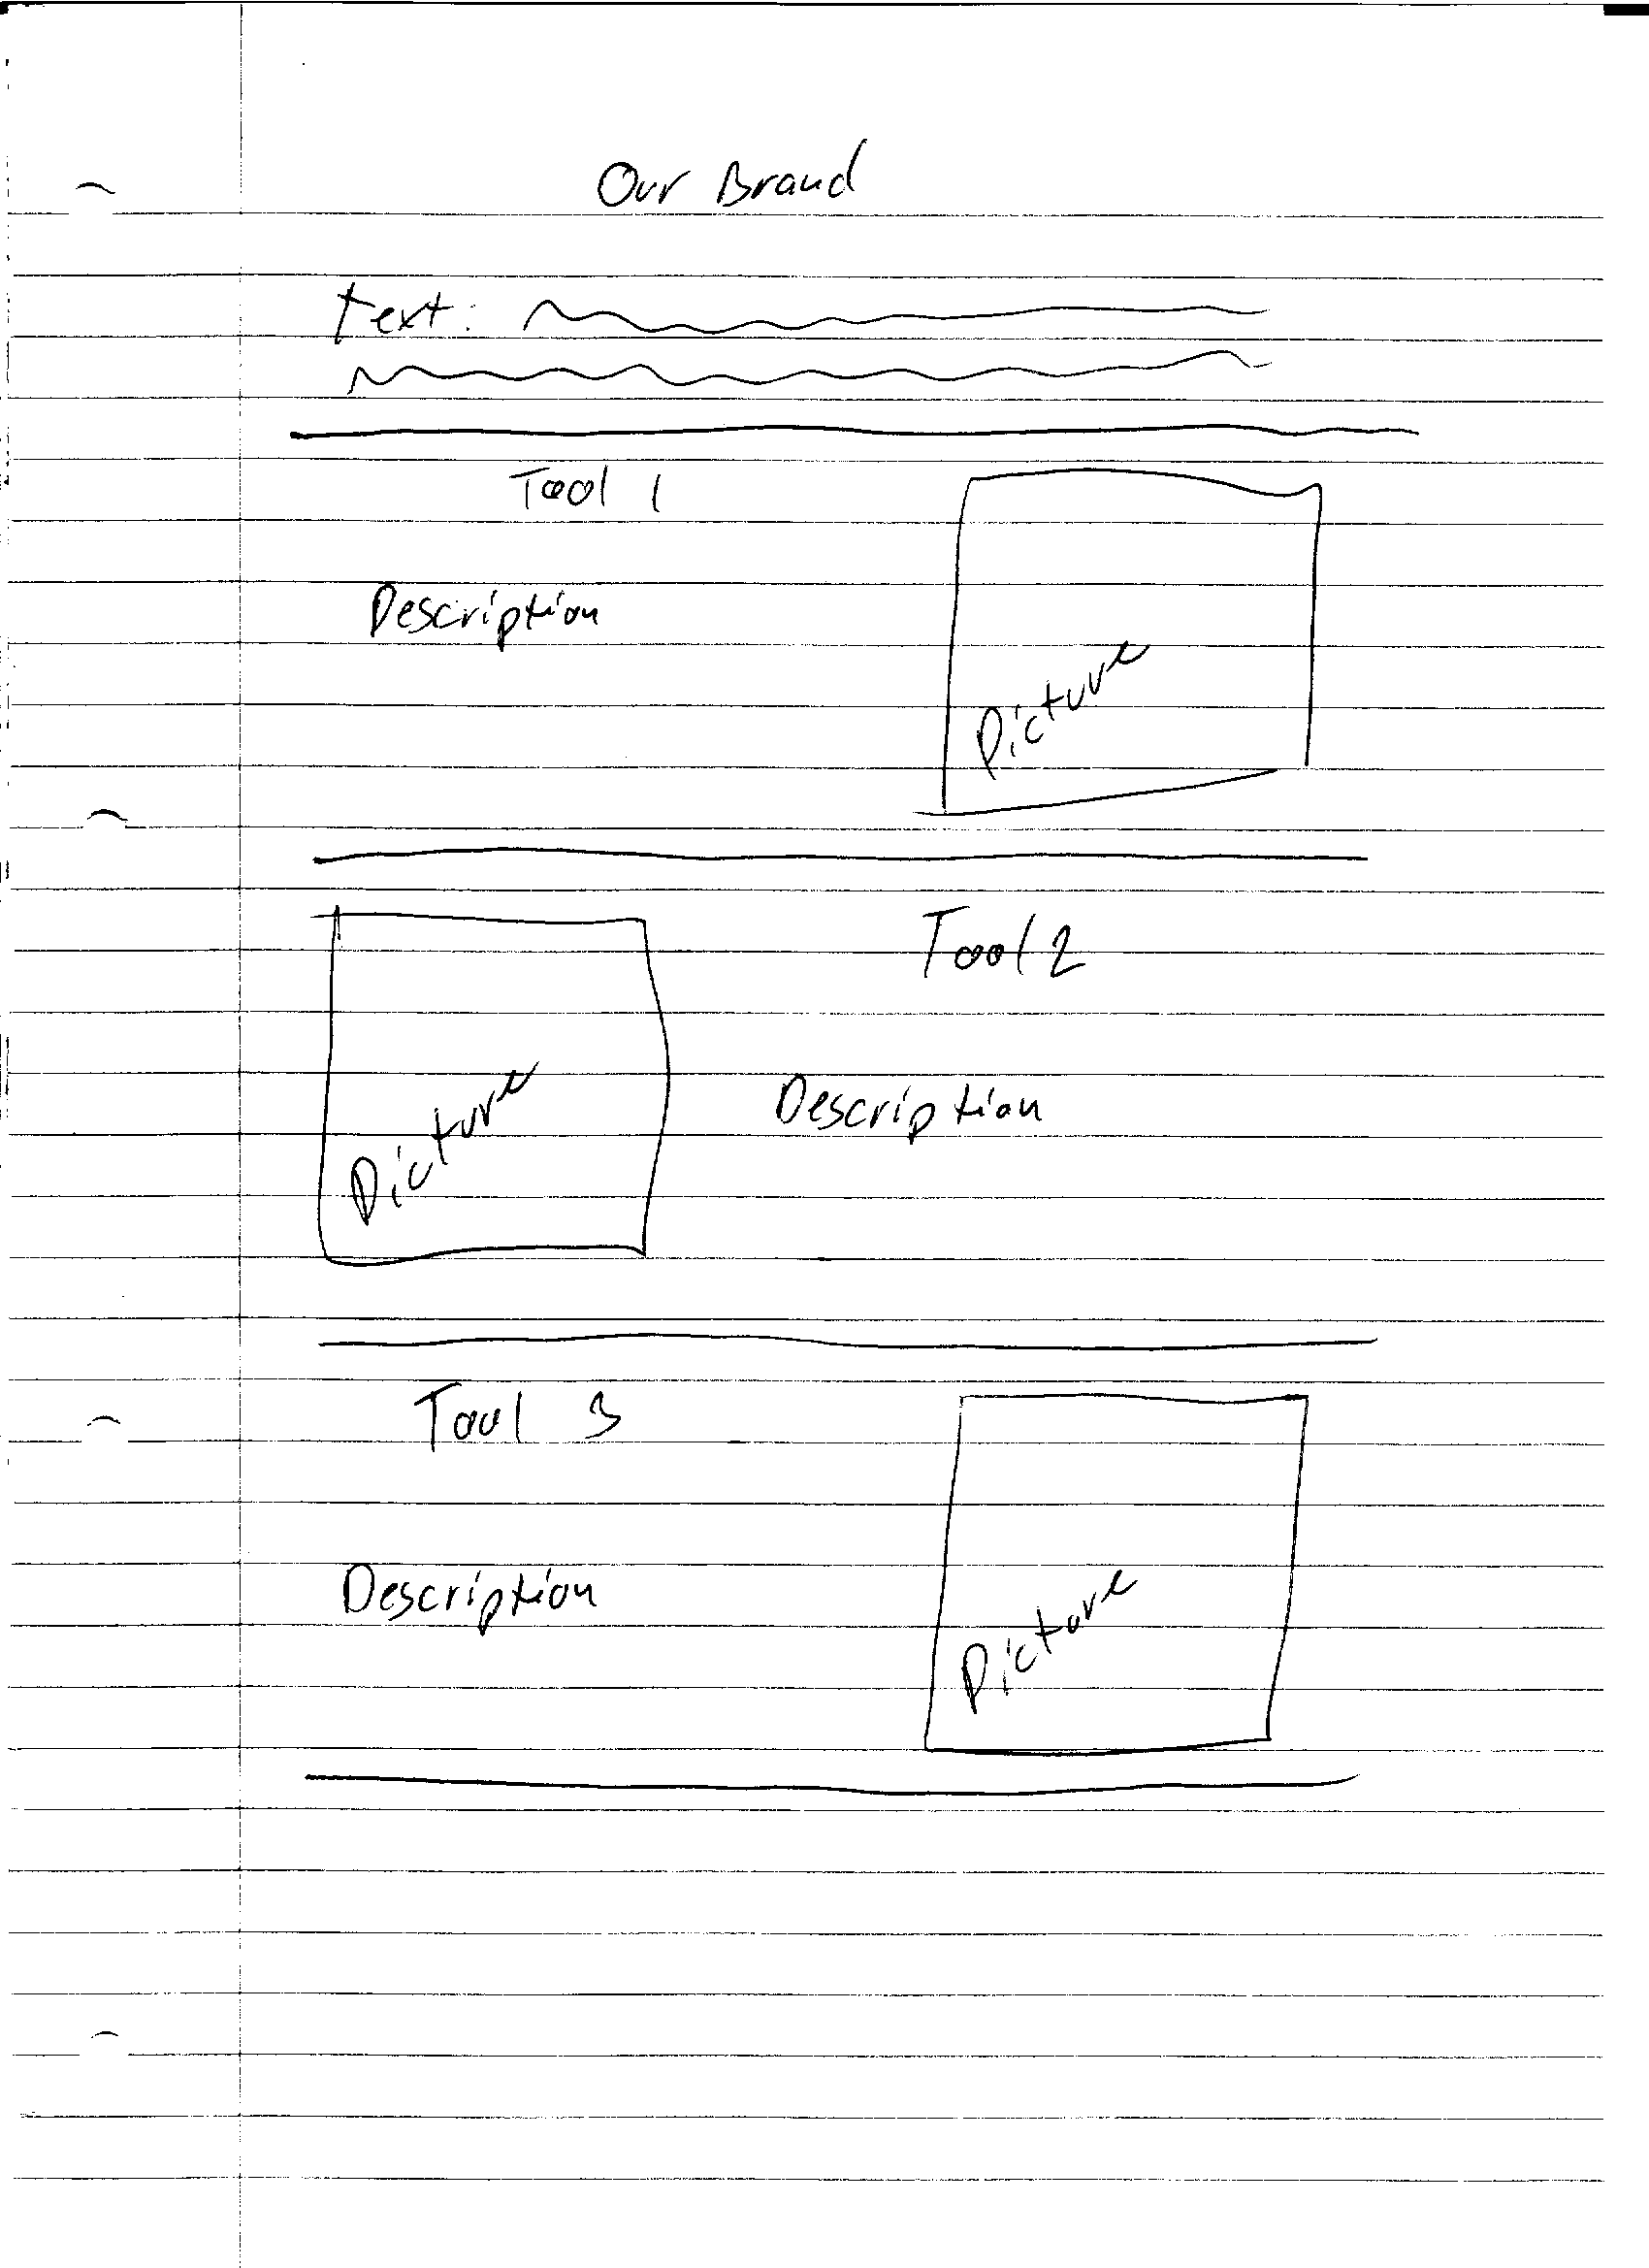 Our Brand
text:
Tool 1
Description
Picture
Tool 2
Description
Picture
Tool 3
Description
Picture